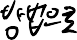 방법으로